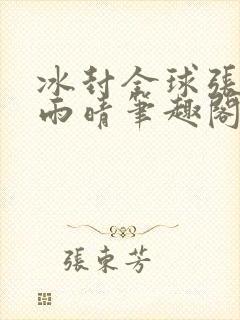 冰封全球張
雨晴筆趣閣
張東芳